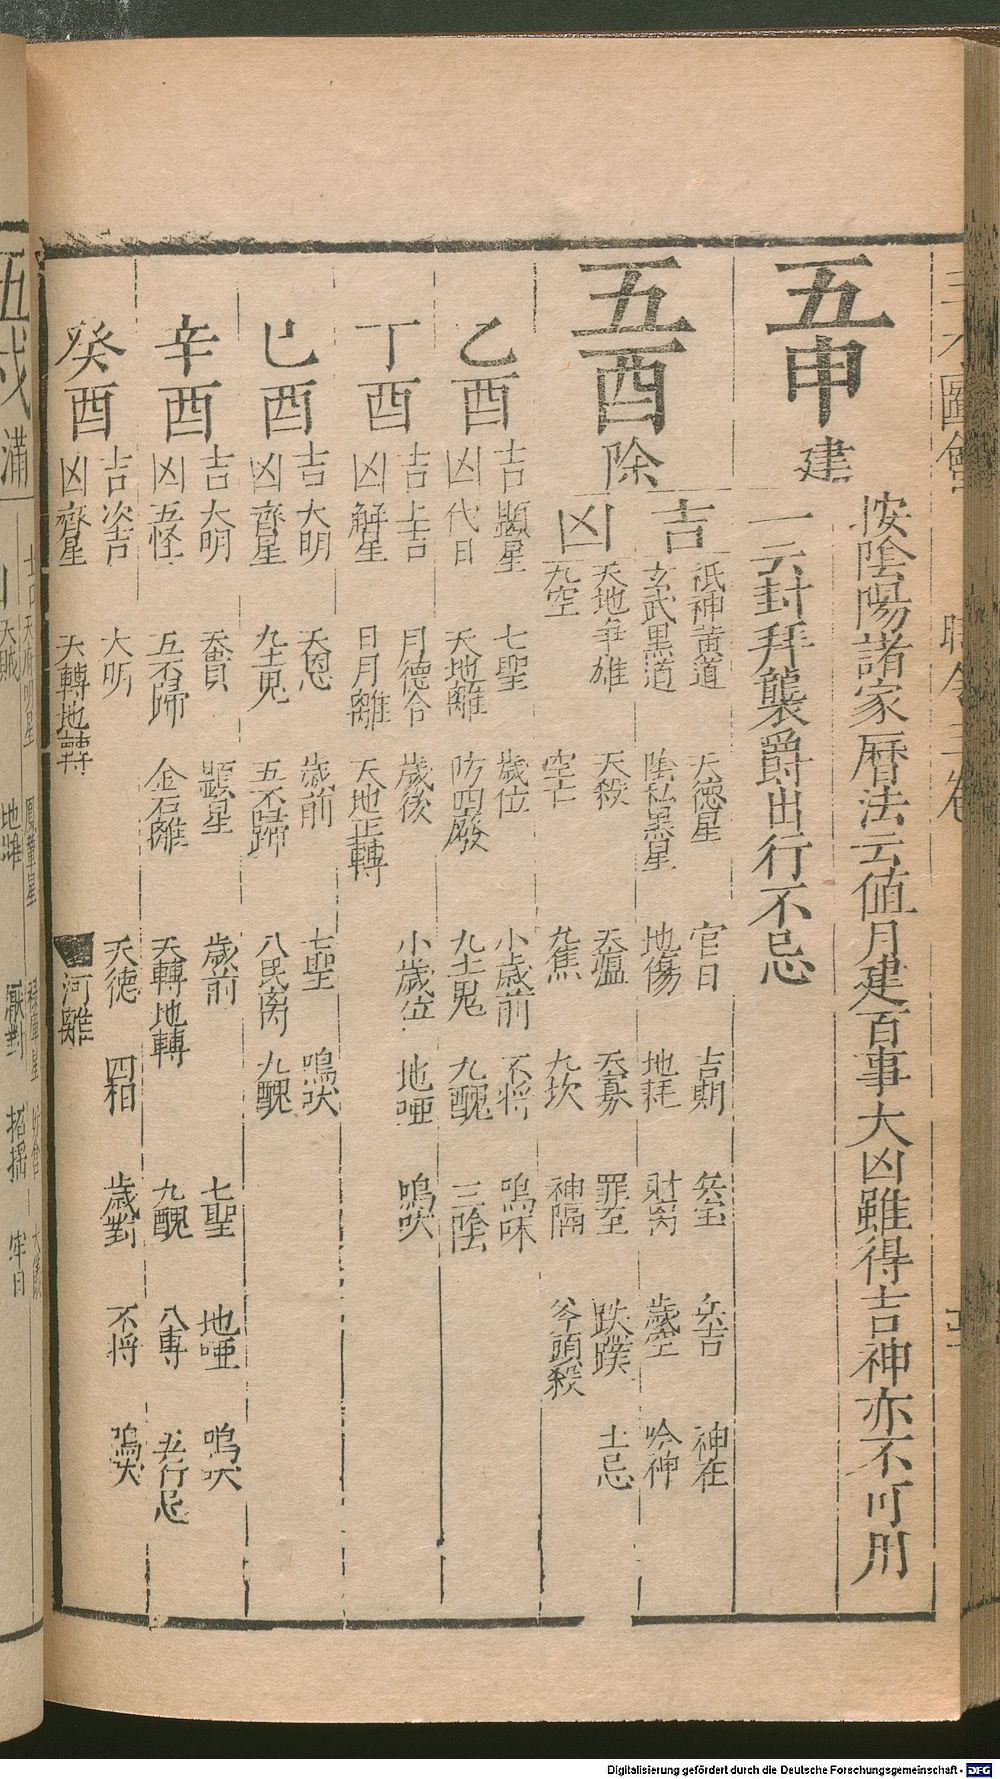 三才圖會 時令三卷
五申 建
按陰陽諸家曆法云值月建百事大凶雖得吉神亦不可用
一云封拜襲爵出行不忌
五酉 除
吉 祇神黃道 天德星 官日 吉期 兵宝 兵吉 神在
玄武黑道 陰私黑星 地傷 地耗 財离 歲空 吟神
凶 天地争雄 天殺 天瘟 天寡 罪至 跌蹼 土忌
九空 空亡 九焦 九坎 神隔 斧頭殺
乙酉 吉 顯星 七聖 歲位 小歲前 不将 鳴吠
凶 伐日 天地離 四廢 九土鬼 九醜 三陰
丁酉 吉 上吉 月德合 歲後 小歲位 地啞 鳴吠
凶 解星 日月離 天地正轉
己酉 吉 大明 天恩 歲前 七聖 鳴吠
凶 齊星 九土鬼 五不歸 八民离 九醜
辛酉 吉 大明 天貴 顯星 歲前 七聖 地啞 鳴吠
凶 五怪 五不歸 金石離 天轉地轉 九醜 八専 五行忌
癸酉 吉 次吉 大明 天德 四相 歲對 不将 鳴吠
凶 齊星 天轉地轉 河離
五戌 滿
Digitalisierung gefördert durch die Deutsche Forschungsgemeinschaft - DFG